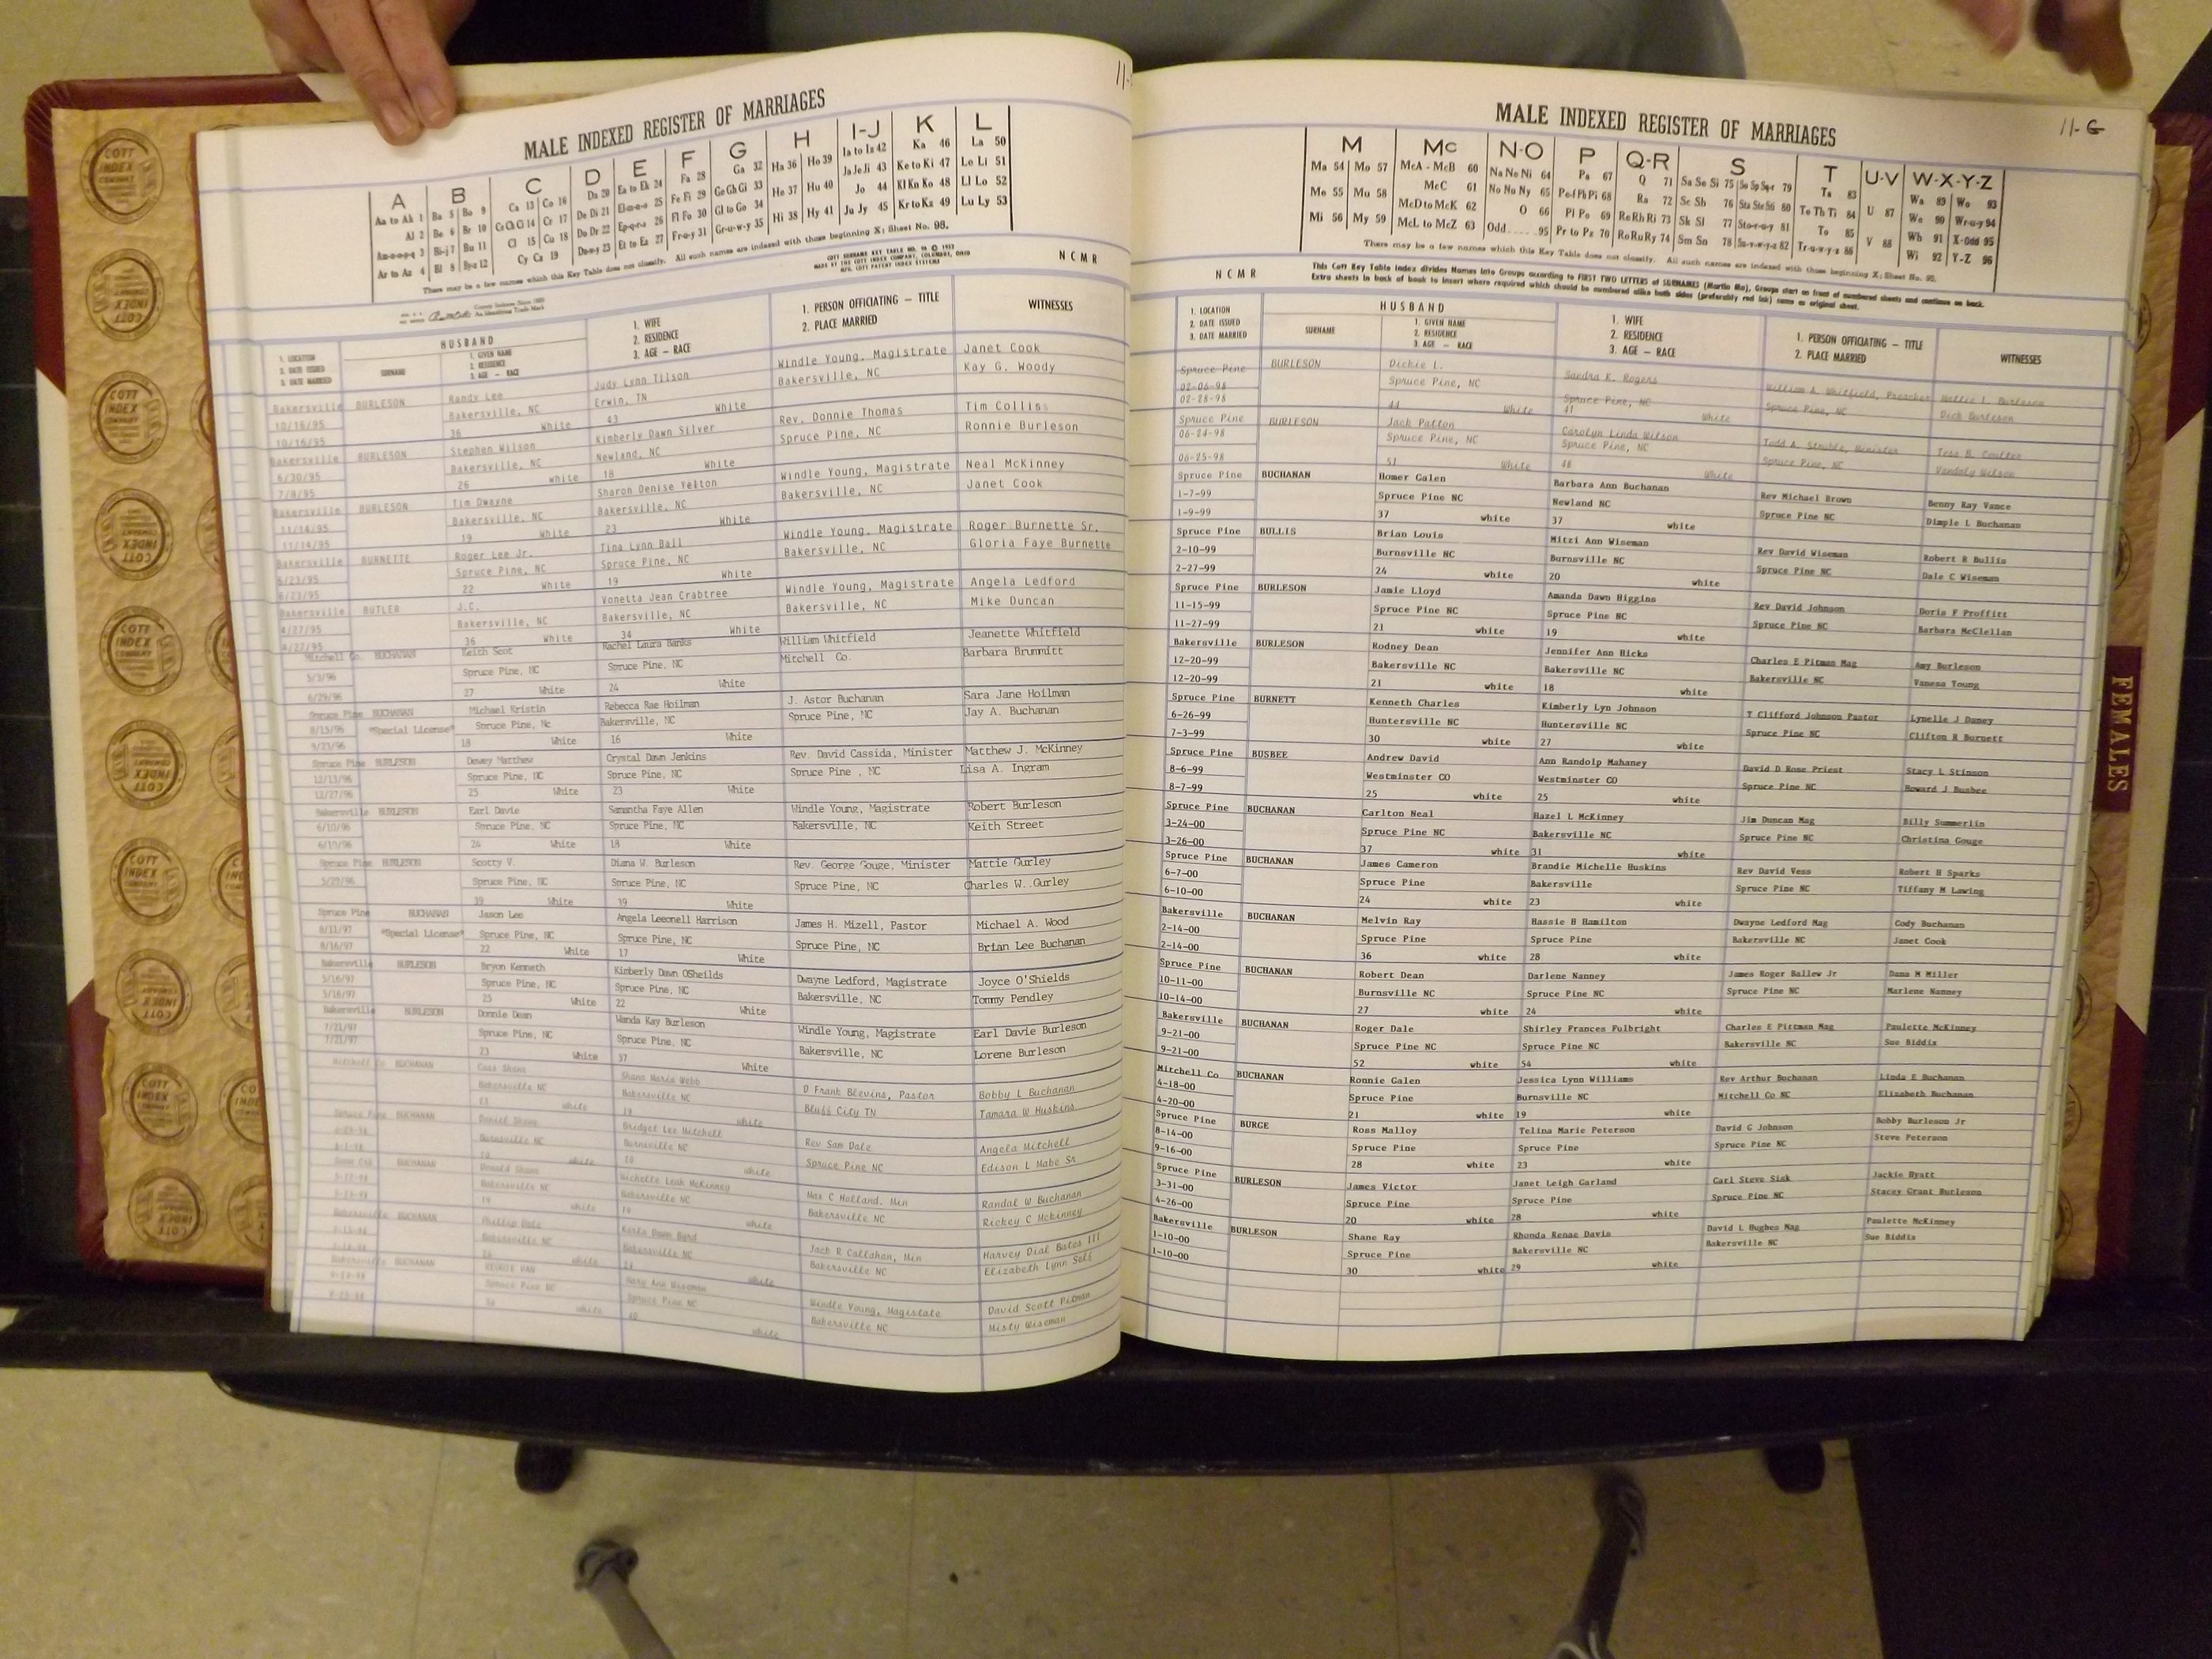 11-
MALE INDEXED REGISTER OF MARRIAGES
A B C D E F G H I-J K L
Aa to Ak 1 Ba 5 Bo 9 Ca 13 Co 16 Da 20 Ea to Ek 24 Fa 28 Ga 32 Ha 36 Ho 39 Ia to Iz 42 Ka 46 La 50
Al 2 Be 6 Br 10 Ce Ch Ci 14 Cr 17 De Di 21 El-m-n-o 25 Fe Fi 29 Ge Gh Gi 33 He 37 Hu 40 Ja Je Ji 43 Ke to Ki 47 Le Li 51
Am-n-o-p-q 3 Bi-j 7 Bu 11 Cl 15 Cu 18 Do Dr 22 Ep-q-r-s 26 Fl Fo 30 Gl to Go 34 Hi 38 Hy 41 Jo 44 Kl Kn Ko 48 Ll Lo 52
Ar to Az 4 Bl 8 By-z 12 Cy Cz 19 Du-w-y 23 Et to Ez 27 Fr-u-y 31 Gr-u-w-y 35 Ju Jy 45 Kr to Kz 49 Lu Ly 53
There may be a few names which this Key Table does not classify. All such names are indexed with those beginning X; Sheet No. 95.
COTT SURNAME KEY TABLE NO. 96 © 1953
MADE BY THE COTT INDEX COMPANY, COLUMBUS, OHIO
MFG. COTT PATENT INDEX SYSTEMS
NCMR
HUSBAND
1. LOCATION 2. DATE ISSUED 3. DATE MARRIED
SURNAME
1. GIVEN NAME 2. RESIDENCE 3. AGE — RACE
1. WIFE 2. RESIDENCE 3. AGE — RACE
1. PERSON OFFICIATING — TITLE 2. PLACE MARRIED
WITNESSES
Bakersville BURLESON Randy Lee Judy Lynn Tilson Windle Young, Magistrate Janet Cook
10/16/95 Bakersville, NC Erwin, TN Bakersville, NC Kay G. Woody
10/16/95 36 White 43 White
Bakersville BURLESON Stephen Wilson Kimberly Dawn Silver Rev. Donnie Thomas Tim Collis
6/30/95 Bakersville, NC Newland, NC Spruce Pine, NC Ronnie Burleson
7/8/95 26 White 18 White
Bakersville BURLESON Tim Dwayne Sharon Denise Yelton Windle Young, Magistrate Neal McKinney
11/14/95 Bakersville, NC Bakersville, NC Bakersville, NC Janet Cook
11/14/95 19 White 23 White
Bakersville BURNETTE Roger Lee Jr. Tina Lynn Ball Windle Young, Magistrate Roger Burnette Sr.
6/23/95 Spruce Pine, NC Spruce Pine, NC Bakersville, NC Gloria Faye Burnette
6/23/95 22 White 19 White
Bakersville BUTLER J.C. Vonetta Jean Crabtree Windle Young, Magistrate Angela Ledford
4/27/95 Bakersville, NC Bakersville, NC Bakersville, NC Mike Duncan
4/27/95 36 White 34 White
Mitchell Co. BUCHANAN Keith Scot Rachel Laura Banks William Whitfield Jeanette Whitfield
5/3/96 Spruce Pine, NC Spruce Pine, NC Mitchell Co. Barbara Brummitt
6/29/96 27 White 24 White
Spruce Pine BUCHANAN Michael Kristin Rebecca Rae Hoilman J. Astor Buchanan Sara Jane Hoilman
8/15/96 *Special License* Spruce Pine, Nc Bakersville, NC Spruce Pine, NC Jay A. Buchanan
9/23/96 18 White 16 White
Spruce Pine BURLESON Dewey Matthew Crystal Dawn Jenkins Rev. David Cassida, Minister Matthew J. McKinney
12/13/96 Spruce Pine, NC Spruce Pine, NC Spruce Pine , NC Lisa A. Ingram
12/27/96 25 White 23 White
Bakersville BURLESON Earl Davie Samantha Faye Allen Windle Young, Magistrate Robert Burleson
6/10/96 Spruce Pine, NC Spruce Pine, NC Bakersville, NC Keith Street
6/10/96 24 White 18 White
Spruce Pine BURLESON Scotty V. Diana W. Burleson Rev. George Gouge, Minister Mattie Gurley
5/29/96 Spruce Pine, NC Spruce Pine, NC Spruce Pine, NC Charles W. Gurley
39 White 39 White
Spruce Pine BUCHANAN Jason Lee Angela Leeonell Harrison James H. Mizell, Pastor Michael A. Wood
8/11/97 *Special License* Spruce Pine, NC Spruce Pine, NC Spruce Pine, NC Brian Lee Buchanan
8/16/97 22 White 17 White
Bakersville BURLESON Bryon Kenneth Kimberly Dawn OSheilds Dwayne Ledford, Magistrate Joyce O'Shields
5/16/97 Spruce Pine, NC Spruce Pine, NC Bakersville, NC Tommy Pendley
5/16/97 25 White 22 White
Bakersville BURLESON Donnie Dean Wanda Kay Burleson Windle Young, Magistrate Earl Davie Burleson
7/21/97 Spruce Pine, NC Spruce Pine, NC Bakersville, NC Lorene Burleson
7/21/97 23 White 37 White
Mitchell Co BUCHANAN Shane Marie Webb D Frank Blevins, Pastor Bobby L Buchanan
Bakersville NC Bakersville NC Bluff City TN Tamara W Huskins
white 19 white
Spruce Pine BUCHANAN Daniel Shane Bridget Lee Mitchell Rev Sam Dale Angela Mitchell
Burnsville NC Burnsville NC Spruce Pine NC Edison L Mabe Sr
white white
BUCHANAN Donald Shane Michelle Leah McKinney Max C Holland, Min Randal W Buchanan
Bakersville NC Bakersville NC Bakersville NC Rickey C Mckinney
19 white 19 white
Bakersville BUCHANAN Phillip Dale Karla Dawn Byrd Jack R Callahan, Min Harvey Dial Bates III
Bakersville NC Bakersville NC Bakersville NC Elizabeth Lynn Self
white white
Bakersville BUCHANAN Mary Ann Wiseman Windle Young, Magistate David Scott Pitman
Spruce Pine NC Spruce Pine NC Bakersville NC Misty Wiseman
white 40 white
11-G
MALE INDEXED REGISTER OF MARRIAGES
M Mc N-O P Q-R S T U-V W-X-Y-Z
Ma 54 Mo 57 McA - McB 60 Na Ne Ni 64 Pa 67 Q 71 Sa Se Si 75 So Sp Sq-r 79 Ta 83 U 87 Wa 89 Wo 93
Me 55 Mu 58 McC 61 No Nu Ny 65 Pe-f Ph Pi 68 Ra 72 Sc Sh 76 Sta Ste Sti 80 Te Th Ti 84 V 88 We 90 Wr-u-y 94
Mi 56 My 59 McD to McK 62 O 66 Pl Po 69 Re Rh Ri 73 Sk Sl 77 Sto-r-u-y 81 To 85 Wh 91 X-Odd 95
McL to McZ 63 Odd 95 Pr to Pz 70 Ro Ru Ry 74 Sm Sn 78 Su-v-w-y-z 82 Tr-u-w-y-z 86 Wi 92 Y-Z 96
There may be a few names which this Key Table does not classify. All such names are indexed with those beginning X; Sheet No. 95.
This Cott Key Table Index divides Names into Groups according to FIRST TWO LETTERS of SURNAMES (Martin Ma), Groups start on front of numbered sheets and continue on back.
Extra sheets in back of book to insert where required which should be numbered alike both sides (preferably red ink) same as original sheet.
NCMR
HUSBAND
1. LOCATION 2. DATE ISSUED 3. DATE MARRIED
SURNAME
1. GIVEN NAME 2. RESIDENCE 3. AGE — RACE
1. WIFE 2. RESIDENCE 3. AGE — RACE
1. PERSON OFFICIATING — TITLE 2. PLACE MARRIED
WITNESSES
Spruce Pine BURLESON Dickie L. Sandra K. Rogers William A Whitfield, Preacher Nellie L Burleson
02-06-98 Spruce Pine, NC Spruce Pine, NC Spruce Pine, NC Dick Burleson
02-28-98 44 White 41 White
Spruce Pine BURLESON Jack Patton Carolyn Linda Wilson Todd A. Struble, Minister Tess B. Coulter
06-24-98 Spruce Pine, NC Spruce Pine, NC Spruce Pine, NC Wilson
06-25-98 51 White 48 White
Spruce Pine BUCHANAN Homer Galen Barbara Ann Buchanan Rev Michael Brown Benny Ray Vance
1-7-99 Spruce Pine NC Newland NC Spruce Pine NC Dimple L Buchanan
1-9-99 37 white 37 white
Spruce Pine BULLIS Brian Louis Mitzi Ann Wiseman Rev David Wiseman Robert R Bullis
2-10-99 Burnsville NC Burnsville NC Spruce Pine NC Dale C Wiseman
2-27-99 24 white 20 white
Spruce Pine BURLESON Jamie Lloyd Amanda Dawn Higgins Rev David Johnson Doris F Proffitt
11-15-99 Spruce Pine NC Spruce Pine NC Spruce Pine NC Barbara McClellan
11-27-99 21 white 19 white
Bakersville BURLESON Rodney Dean Jennifer Ann Hicks Charles E Pitman Mag Amy Burleson
12-20-99 Bakersville NC Bakersville NC Bakersville NC Vanesa Young
12-20-99 21 white 18 white
Spruce Pine BURNETT Kenneth Charles Kimberly Lyn Johnson T Clifford Johnson Pastor Lynelle J Daney
6-26-99 Huntersville NC Huntersville NC Spruce Pine NC Clifton R Burnett
7-3-99 30 white 27 white
Spruce Pine BUSBEE Andrew David Ann Randolp Mahaney David D Rose Priest Stacy L Stinson
8-6-99 Westminster CO Westminster CO Spruce Pine NC Howard J Busbee
8-7-99 25 white 25 white
Spruce Pine BUCHANAN Carlton Neal Hazel L McKinney Jim Duncan Mag Billy Summerlin
3-24-00 Spruce Pine NC Bakersville NC Spruce Pine NC Christina Gouge
3-26-00 37 white 31 white
Spruce Pine BUCHANAN James Cameron Brandie Michelle Huskins Rev David Vess Robert H Sparks
6-7-00 Spruce Pine Bakersville Spruce Pine NC Tiffany M Lawing
6-10-00 24 white 23 white
Bakersville BUCHANAN Melvin Ray Hassie B Hamilton Dwayne Ledford Mag Cody Buchanan
2-14-00 Spruce Pine Spruce Pine Bakersville NC Janet Cook
2-14-00 36 white 28 white
Spruce Pine BUCHANAN Robert Dean Darlene Nanney James Roger Ballew Jr Dana M Miller
10-11-00 Burnsville NC Spruce Pine NC Spruce Pine NC Marlene Nanney
10-14-00 27 white 24 white
Bakersville BUCHANAN Roger Dale Shirley Frances Fulbright Charles E Pittman Mag Paulette McKinney
9-21-00 Spruce Pine NC Spruce Pine NC Bakersville NC Sue Biddix
9-21-00 52 white 54 white
Mitchell Co BUCHANAN Ronnie Galen Jessica Lynn Williams Rev Arthur Buchanan Linda E Buchanan
4-18-00 Spruce Pine Burnsville NC Mitchell Co NC Elizabeth Buchanan
4-20-00 21 white 19 white
Spruce Pine BURGE Ross Malloy Telina Marie Peterson David G Johnson Bobby Burleson Jr
8-14-00 Spruce Pine Spruce Pine Spruce Pine NC Steve Peterson
9-16-00 28 white 23 white
Spruce Pine BURLESON James Victor Janet Leigh Garland Carl Steve Sisk Jackie Hyatt
3-31-00 Spruce Pine Spruce Pine Spruce Pine NC Stacey Grant Burleson
4-26-00 20 white 28 white
Bakersville BURLESON Shane Ray Rhonda Renae Davis David L Hughes Mag Paulette McKinney
1-10-00 Spruce Pine Bakersville NC Bakersville NC Sue Biddix
1-10-00 30 white 29 white
FEMALES
COTT INDEX COMPANY